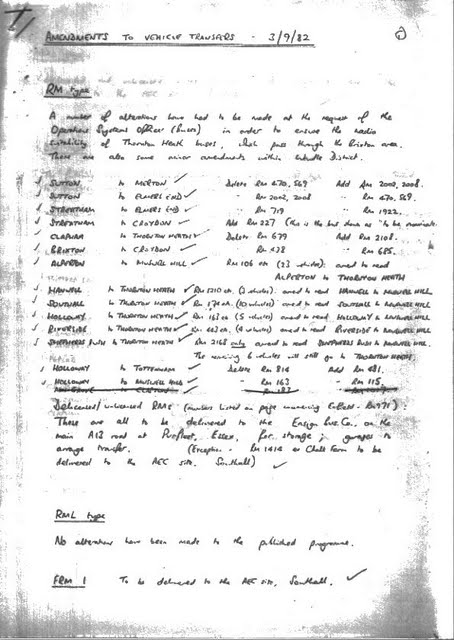 AMENDMENTS TO VEHICLE TRANSFERS - 3/9/82
RM type
A number of alterations have had to be made at the request of the
Operations Systems Officer (Buses) in order to ensure the radio
suitability of Thornton Heath buses, which pass through the Brixton area.
There are also some minor amendments within District.
SUTTON to MERTON ✓ Delete RM 470, 569 Add RM 2002, 2008.
SUTTON to ELMERS END ✓ " RM 2002, 2008 " RM 470, 569.
STREATHAM to ELMERS END ✓ " RM 719 " RM 1922.
STREATHAM to CROYDON ✓ Add RM 227 (this is the bus shown as "to be nominated")
CLAPHAM to THORNTON HEATH ✓ Delete RM 679 Add RM 2108.
BRIXTON to CROYDON ✓ " RM 638 " RM 685.
ALPERTON to MUSWELL HILL ✓ RM 106 etc. (23 vehicles) amend to read
ALPERTON to THORNTON HEATH
HANWELL to THORNTON HEATH ✓ RM 1210 etc. (2 vehicles) amend to read HANWELL to MUSWELL HILL
SOUTHALL to THORNTON HEATH ✓ RM 574 etc. (10 vehicles) amend to read SOUTHALL to MUSWELL HILL
HOLLOWAY to THORNTON HEATH ✓ RM 163 etc. (5 vehicles) amend to read HOLLOWAY to MUSWELL HILL
RIVERSIDE to THORNTON HEATH ✓ RM etc. (4 vehicles) amend to read RIVERSIDE to MUSWELL HILL
SHEPHERDS BUSH to THORNTON HEATH ✓ RM 2168 only amend to read SHEPHERDS BUSH to MUSWELL HILL.
The remaining 6 vehicles will still go to THORNTON HEATH
HOLLOWAY to TOTTENHAM ✓ Delete RM 814 Add RM 481.
HOLLOWAY to MUSWELL HILL ✓ " RM 163 " RM 115.
to CLAPTON RM 183
Delicenced/unlicenced RMs (numbers listed on page - RM 971):
These are all to be delivered to the Ensign Bus Co., on the
main A13 road at Purfleet, Essex, for storage; garages to
arrange transfer. (Exception - RM 1414 at Chalk Farm to be
delivered to the AEC site, Southall) ✓
RML type
No alterations have been made to the published programme.
FRM 1 To be delivered to the AEC site, Southall. ✓